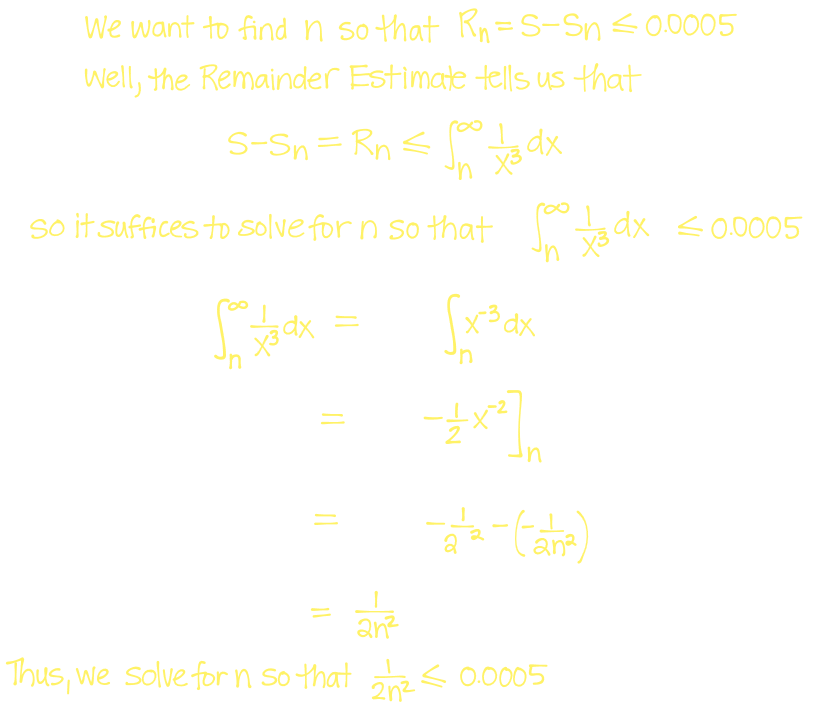 We want to find n so that Rn = S-Sn ≤ 0.0005
Well, the Remainder Estimate tells us that
S-Sn = Rn ≤ ∫n^∞ 1/x³ dx
so it suffices to solve for n so that ∫n^∞ 1/x³ dx ≤ 0.0005
∫n^∞ 1/x³ dx = ∫n x⁻³ dx
= -1/2 x⁻²]n
= -1/2 ² - (-1/2n²)
= 1/2n²
Thus, we solve for n so that 1/2n² ≤ 0.0005